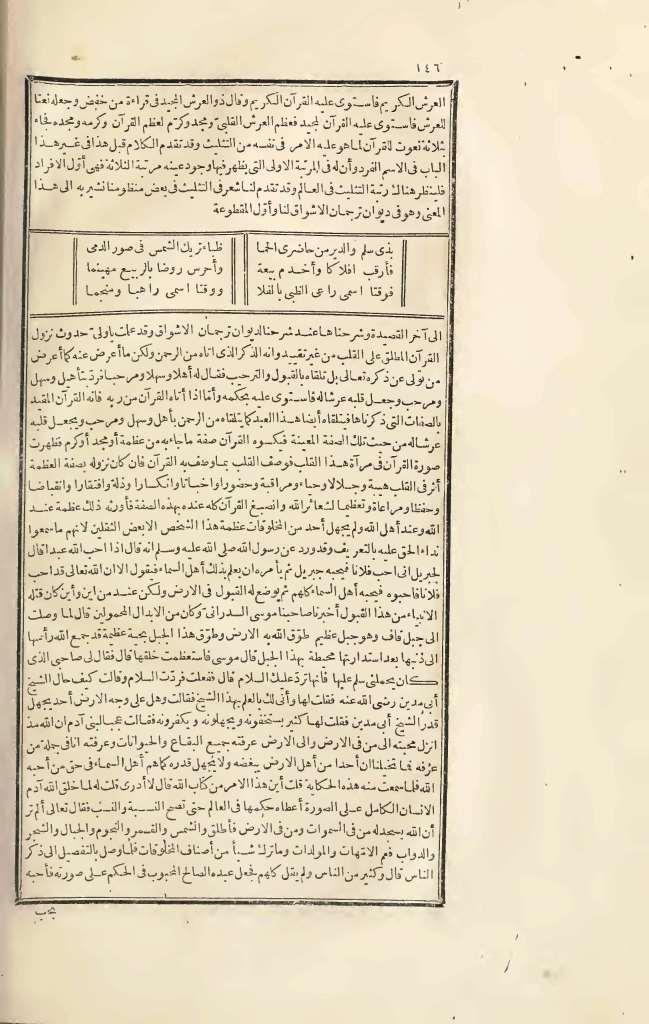 ١٤٦
العرش الكريم فاستوى عليه القرآن الكريم وقال ذو العرش المجيد فى قراءة من خفض وجعله نعتا
للعرش فاستوى عليه القرآن المجيد فعظم العرش القلبى ومجد وكرم لعظم القرآن وكرمه ومجده فجاء
بثلاثة نعوت للقرآن لما هو عليه الامر فى نفسه من التثليث وقد تقدم الكلام قبل هذا فى غير هذا
الباب فى الاسم الفرد وأن له فى المرتبة الاولى التى يظهر فيها وجود عينه مرتبة الثلاثة فهى أوّل الافراد
فلينظر هنالك رتبة التثليث فى العالم وقد تقدم لنا شعر فى التثليث فى بعض منظومنا نشير به الى هذا
المعنى وهو فى ديوان ترجمان الاشواق لنا وأوّل المقطوعة
بذى سلم والدير من حاضرى الحما ظباء تريك الشمس فى صور الدمى
فأرقب افلاكا وأخدم بيعة وأحرس روضا بالربيع منهنما
فوقتا اسمى راعى الظبى بالفلا ووقتا اسمى راهبا ومنجما
الى آخر القصيدة وشرحناها عند شرحنا لديوان ترجمان الاشواق وقد علمت ياولى حدوث نزول
القرآن المطلق على القلب من غير تقييد وانه الذكر الذى اتاه من الرحمن ولكن ما أعرض عنه كما أعرض
من تولى عن ذكره تعالى بل تلقاه بالقبول والترحب فقال له أهلا وسهلا ومرحبا فرد بتأهيل وسهل
ومرحب وجعل قلبه عرشا له فاستوى عليه بحكمه وأما اذا أتاه القرآن من ربه فانه القرآن المقيد
بالصفات التى ذكرناها فيتلقاه أيضا هذا العبد كما يتلقاه من الرحمن بأهل وسهل ومرحب ويجعل قلبه
عرشا له من حيث تلك الصفة المعينة فيكسوه القرآن صفة ما جاء به من عظمة أو مجد أو كرم فظهرت
صورة القرآن فى مرآة هذا القلب فوصف القلب بما وصف به القرآن فان كان نزوله بصفة العظمة
أثر فى القلب هيبة وجلالا وحياء ومراقبة وحضورا واخباتا وانكسارا وذلة وافتقارا وانقباضا
وحفظا ومراعاة وتعظيما لشعائر الله وانصبغ القرآن كله عنده بهذه الصفة فأورثه ذلك عظمة عند
الله وعند أهل الله ولم يجهل أحد من المخلوقات عظمة هذا الشخص الا بعض الثقلين لانهم ما سمعوا
نداء الحق عليه بالتعريف وقد ورد عن رسول الله صلى الله عليه وسلم انه قال اذا احب الله عبدا قال
لجبريل انى احب فلانا فيحبه جبريل ثم يأمره ان يعلم بذلك أهل السماء فيقول الا ان الله تعالى قد احب
فلانا فاحبوه فيحبه أهل السماء كلهم ثم يوضع له القبول فى الارض ولكن عند من وأين كان قتله
الانبياء من هذا القبول أخبرنا صاحبنا موسى السدرانى وكان من الابدال المحمولين قال لما وصلت
الى جبل قاف وهو جبل عظيم طوّق الله به الارض وطوّق هذا الجبل بحية عظيمة قد جمع الله رأسها
الى ذنبها بعد استدارتها محيطة بهذا الجبل قال موسى فاستعظمت خلقها قال فقال لى صاحبى الذى
كان يحملنى سلم عليها فانها ترد عليك السلام قال ففعلت فردّت السلام وقالت كيف حال الشيخ
أبى مدين رضى الله عنه فقلت لها وأنى لك بالعلم بهذا الشيخ فقالت وهل على وجه الارض أحد يجهل
قدر الشيخ أبى مدين فقلت لها كثير يستخفونه ويجهلونه ويكفرونه فقالت عجبا لبنى آدم ان الله مذ
انزل محبته الى من فى الارض والى الارض عرفته جميع البقاع والحيوانات وعرفته انا فى جملة من
عرفه فما تخيلنا ان أحدا من أهل الارض يبغضه ولا يجهل قدره كما هم أهل السماء فى حق من أحبه
الله فلما سمعت منه هذه الحكاية قلت أين هذا الامر من كتاب الله قال لا أدرى قلت له لما خلق الله آدم
الانسان الكامل على الصورة أعطاه حكمها فى العالم حتى تصح النسبة والنسب فقال تعالى ألم تر
أن الله يسجد له من فى السموات ومن فى الارض فأطلق والشمس والقمر والنجوم والجبال والشجر
والدواب فعم الامّهات والمولدات وما ترك شيأ من أصناف المخلوقات فلما وصل بالتفصيل الى ذكر
الناس قال وكثير من الناس ولم يقل كلهم فجعل عبده الصالح المحبوب فى الحكم على صورته فأحبه
بحب